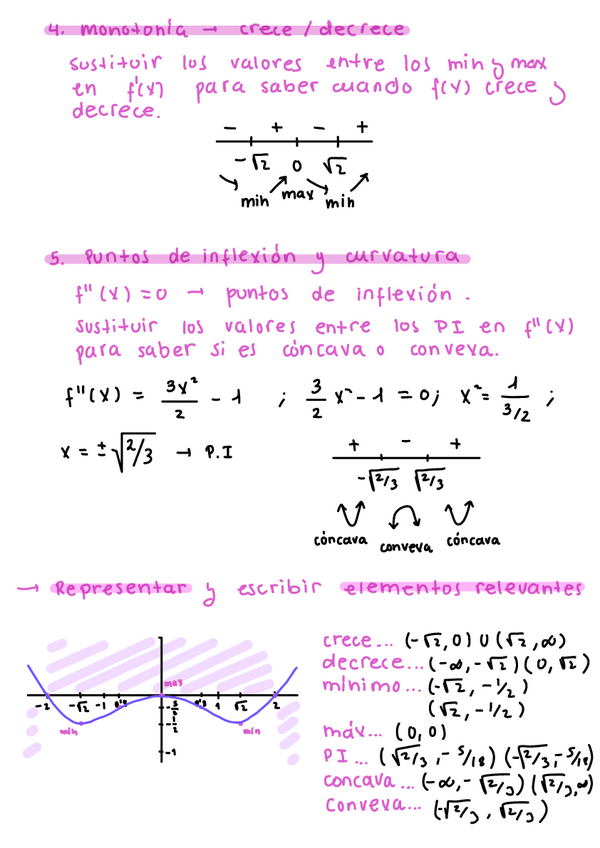 4. Monotonía → crece / decrece
sustituir los valores entre los min y max
en f'(x) para saber cuando f(x) crece y
decrece.
- + - +
-√2 0 √2
min max min
5. Puntos de inflexión y curvatura
f''(x) = 0 → puntos de inflexión.
sustituir los valores entre los PI en f''(x)
para saber si es cóncava o conveva.
f''(x) = 3x²/2 - 1 ; 3/2 x² - 1 = 0; x² = 1/3/2 ;
x = ±√2/3 → P.I
+ - +
-√2/3 √2/3
cóncava conveva cóncava
→ Representar y escribir elementos relevantes
crece... (-√2, 0) U (√2, ∞)
decrece... (-∞, -√2) (0, √2)
mínimo... (-√2, -1/2)
(√2, -1/2)
máx... (0, 0)
PI... (√2/3, -5/18) (-√2/3, -5/18)
concava... (-∞, -√2/3) (√2/3, ∞)
conveva... (-√2/3, √2/3)
max
-2 -√2 -1 1 √2 2
-1/2
min min
-1